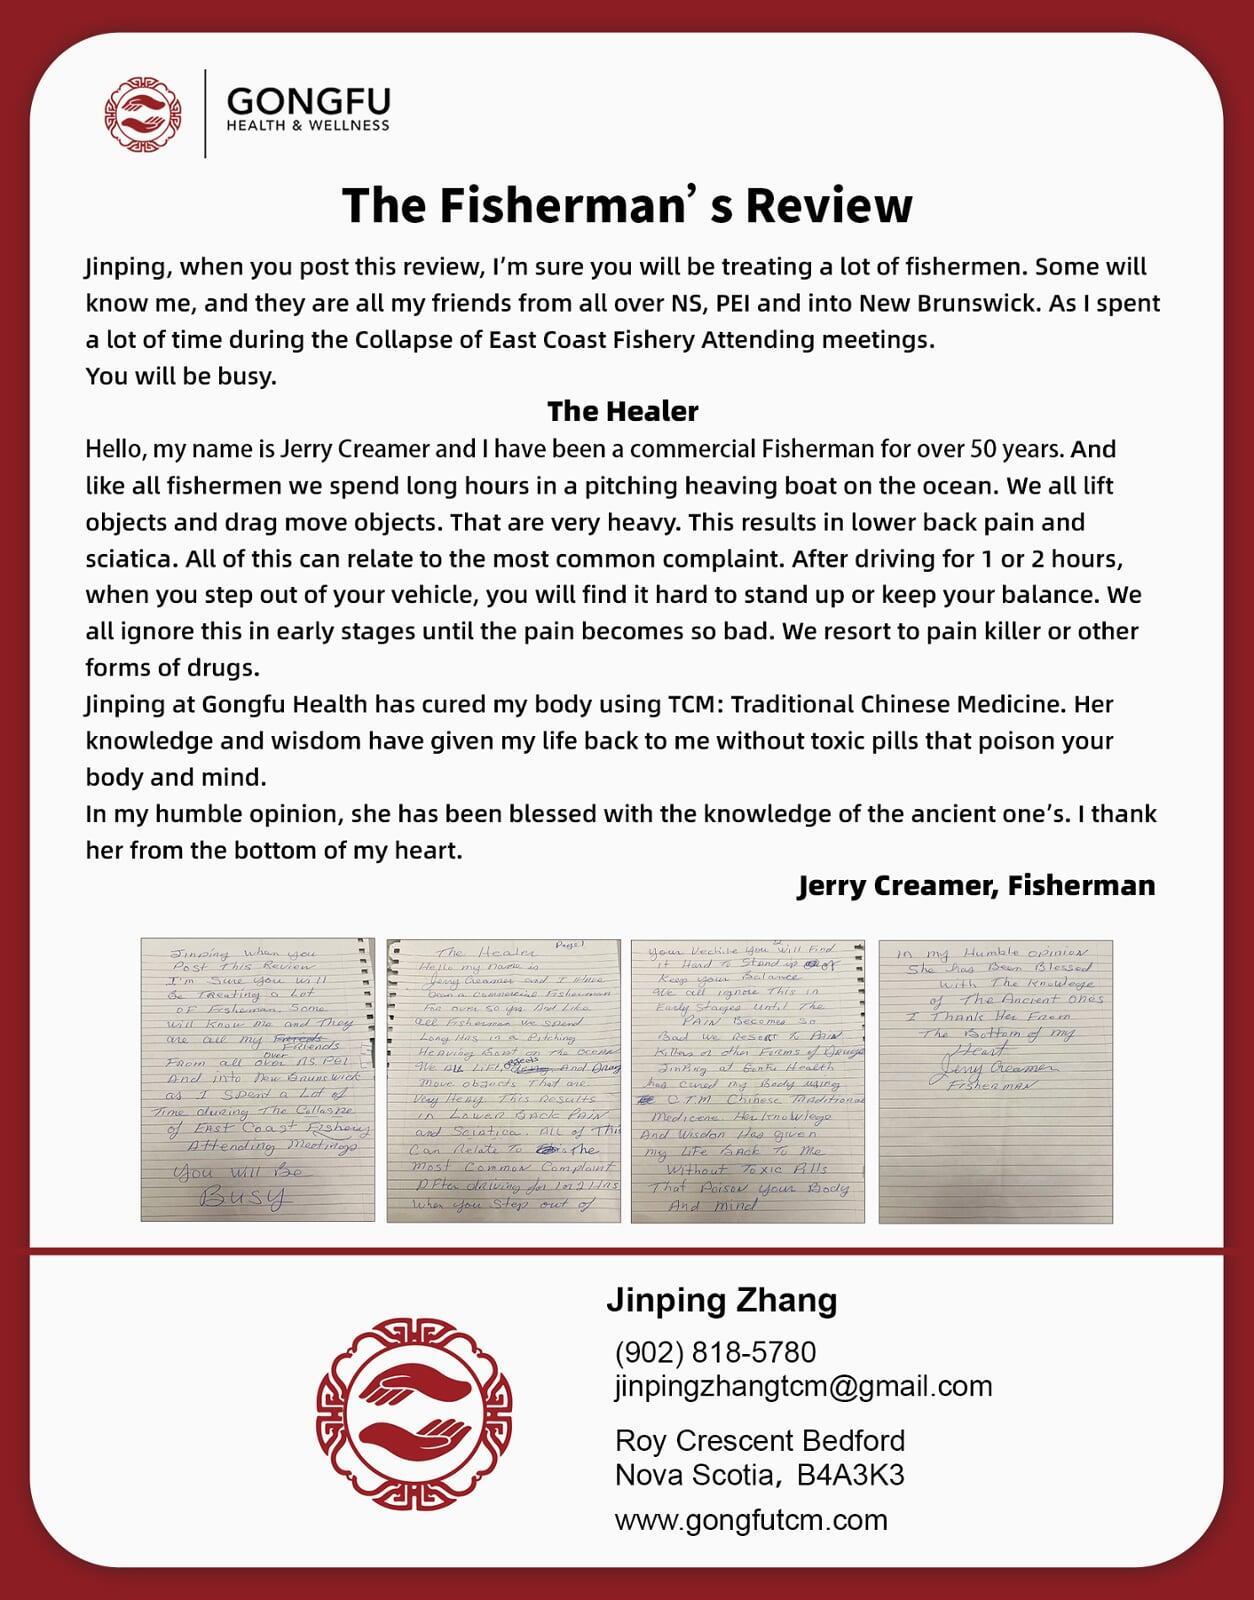 GONGFU
HEALTH & WELLNESS
The Fisherman’s Review
Jinping, when you post this review, I’m sure you will be treating a lot of fishermen. Some will
know me, and they are all my friends from all over NS, PEI and into New Brunswick. As I spent
a lot of time during the Collapse of East Coast Fishery Attending meetings.
You will be busy.
The Healer
Hello, my name is Jerry Creamer and I have been a commercial Fisherman for over 50 years. And
like all fishermen we spend long hours in a pitching heaving boat on the ocean. We all lift
objects and drag move objects. That are very heavy. This results in lower back pain and
sciatica. All of this can relate to the most common complaint. After driving for 1 or 2 hours,
when you step out of your vehicle, you will find it hard to stand up or keep your balance. We
all ignore this in early stages until the pain becomes so bad. We resort to pain killer or other
forms of drugs.
Jinping at Gongfu Health has cured my body using TCM: Traditional Chinese Medicine. Her
knowledge and wisdom have given my life back to me without toxic pills that poison your
body and mind.
In my humble opinion, she has been blessed with the knowledge of the ancient one’s. I thank
her from the bottom of my heart.
Jerry Creamer, Fisherman
Jinping when you
Post This Review
I'm Sure You will
Be Treating a Lot
OF Fisheman. Some
will know me and They
are all my
Friends
From all over NS. PEI
And into New Brunswick
as I Spent a Lot of
Time during The Collapse
of EAST Coast Fishery
Attending Meetings
You will Be
Busy
Page 1
The Healer
Hello my name is
Jerry Creamer and I Have
been a Commercial Fisherman
For over 50 yrs And Like
all Fisherman we spend
Long Hrs in a Pitching
Heaving Boat on The ocean
We All Lift objects And Drag
Move objects That are
Very Heavy This Results
in Lower Back PAIN
and Sciatica. All of This
Can Relate To The
most Common Complaint
After driving for 1 or 2 Hrs
When you Step out of
2
Your Vechile You will Find
it Hard To Stand up or
Keep your Balance
We all ignore This in
Early Stages Until The
PAIN Becomes So
Bad We Resort To Pain
Killers or other Forms of Drugs
Jinping at Gonfu Health
has cured my Body using
C.T.M Chinese Traditional
Medicene. Her Knowlege
And Wisdon Has given
my Life BACK To Me
Without Toxic Pills
That Poison Your Body
And mind
in my Humble opinion
She has Been Blessed
with The Knowlege
of The Ancient ones
I Thank Her From
The Bottom of my
Heart
Jerry Creamer
FISHERMAN
Jinping Zhang
(902) 818-5780
jinpingzhangtcm@gmail.com
Roy Crescent Bedford
Nova Scotia, B4A3K3
www.gongfutcm.com